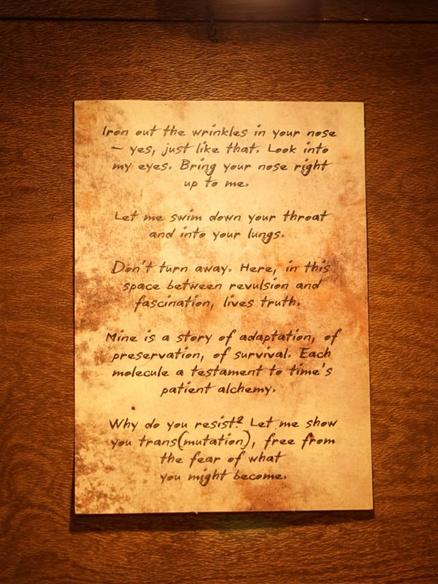 Iron out the wrinkles in your nose
— yes, just like that. Look into
my eyes. Bring your nose right
up to me.
Let me swim down your throat
and into your lungs.
Don't turn away. Here, in this
space between revulsion and
fascination, lives truth.
Mine is a story of adaptation, of
preservation, of survival. Each
molecule a testament to time's
patient alchemy.
Why do you resist? Let me show
you trans(mutation), free from
the fear of what
you might become.